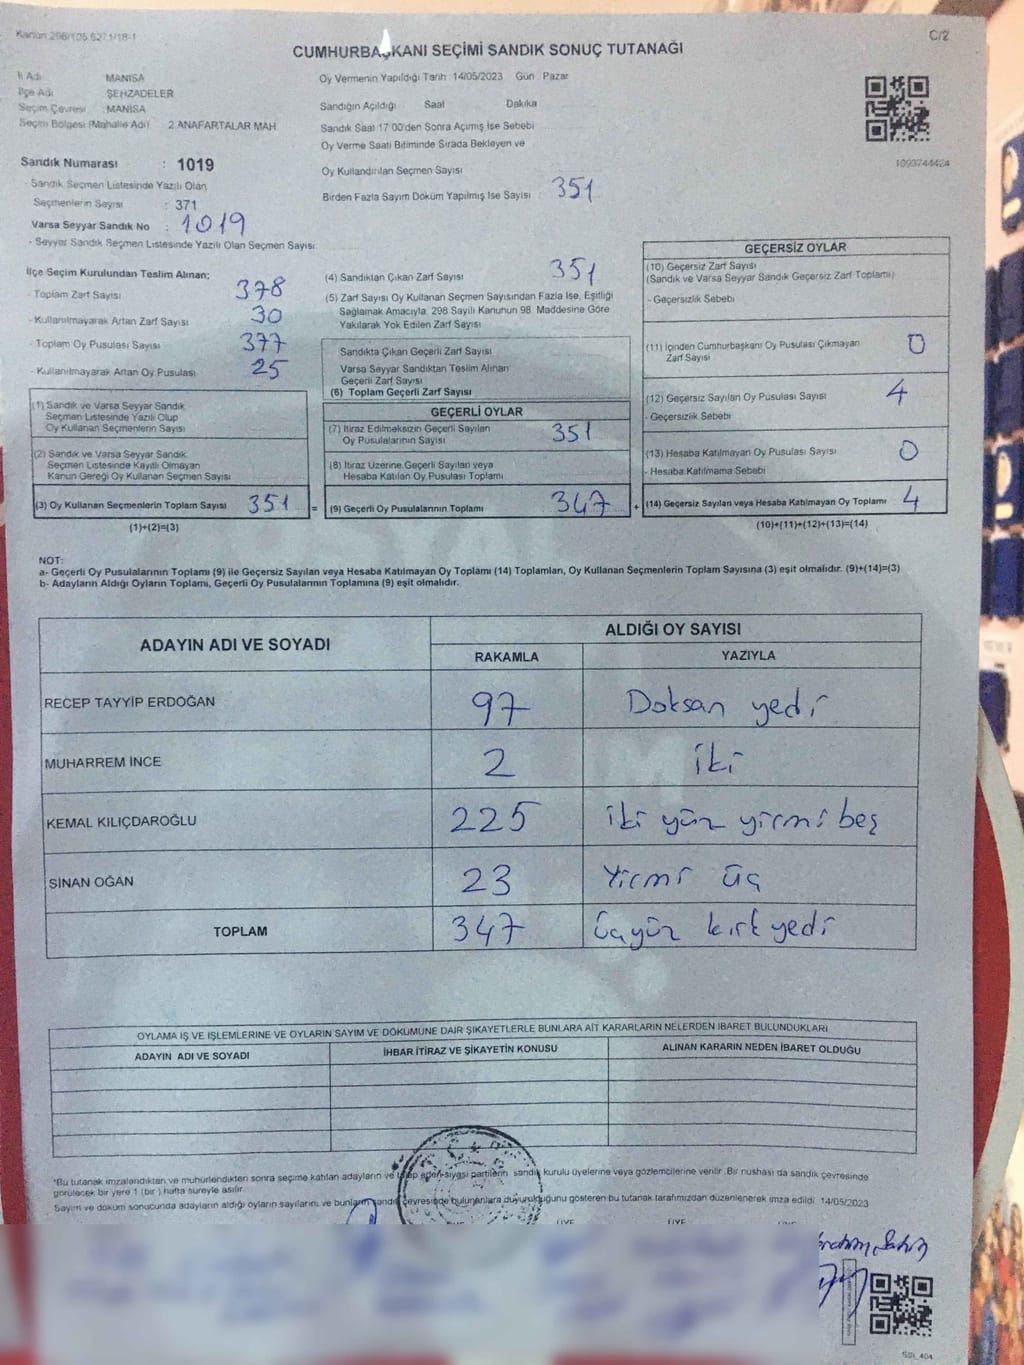 Kanun 298/105.6271/18-1
C/2
CUMHURBAŞKANI SEÇİMİ SANDIK SONUÇ TUTANAĞI
İl Adı MANİSA
İlçe Adı ŞEHZADELER
Seçim Çevresi MANİSA
Seçim Bölgesi (Mahalle Adı) 2.ANAFARTALAR MAH
Oy Vermenin Yapıldığı Tarih 14/05/2023 Gün Pazar
Sandığın Açıldığı Saat Dakika
Sandık Saat 17:00'den Sonra Açımış İse Sebebi
Oy Verme Saati Bitiminde Sırada Bekleyen ve
Oy Kullandırılan Seçmen Sayısı
Birden Fazla Sayım Döküm Yapılmış İse Sayısı 351
1093744424
Sandık Numarası : 1019
- Sandık Seçmen Listesinde Yazılı Olan
Seçmenlerin Sayısı : 371
Varsa Seyyar Sandık No : 1019
- Seyyar Sandık Seçmen Listesinde Yazılı Olan Seçmen Sayısı
İlçe Seçim Kurulundan Teslim Alınan;
- Toplam Zarf Sayısı 378
- Kullanılmayarak Artan Zarf Sayısı 30
- Toplam Oy Pusulası Sayısı 377
- Kullanılmayarak Artan Oy Pusulası 25
(1) Sandık ve Varsa Seyyar Sandık
Seçmen Listesinde Yazılı Olup
Oy Kullanan Seçmenlerin Sayısı
(2) Sandık ve Varsa Seyyar Sandık
Seçmen Listesinde Kayıtlı Olmayan
Kanun Gereği Oy Kullanan Seçmen Sayısı
(3) Oy Kullanan Seçmenlerin Toplam Sayısı 351 =
(1)+(2)=(3)
(4) Sandıktan Çıkan Zarf Sayısı 351
(5) Zarf Sayısı Oy Kullanan Seçmen Sayısından Fazla İse, Eşitliği
Sağlamak Amacıyla, 298 Sayılı Kanunun 98. Maddesine Göre
Yakılarak Yok Edilen Zarf Sayısı
Sandıkta Çıkan Geçerli Zarf Sayısı
Varsa Seyyar Sandıktan Teslim Alınan
Geçerli Zarf Sayısı
(6) Toplam Geçerli Zarf Sayısı
GEÇERLİ OYLAR
(7) İtiraz Edilmeksizin Geçerli Sayılan
Oy Pusulalarının Sayısı 351
(8) İtiraz Üzerine Geçerli Sayılan veya
Hesaba Katılan Oy Pusulası Toplamı
(9) Geçerli Oy Pusulalarının Toplamı 347 +
GEÇERSİZ OYLAR
(10) Geçersiz Zarf Sayısı
(Sandık ve Varsa Seyyar Sandık Geçersiz Zarf Toplamı)
- Geçersizlik Sebebi
(11) İçinden Cumhurbaşkanı Oy Pusulası Çıkmayan
Zarf Sayısı 0
(12) Geçersiz Sayılan Oy Pusulası Sayısı 4
- Geçersizlik Sebebi
(13) Hesaba Katılmayan Oy Pusulası Sayısı 0
- Hesaba Katılmama Sebebi
(14) Geçersiz Sayılan veya Hesaba Katılmayan Oy Toplamı 4
(10)+(11)+(12)+(13)=(14)
NOT:
a- Geçerli Oy Pusulalarının Toplamı (9) ile Geçersiz Sayılan veya Hesaba Katılmayan Oy Toplamı (14) Toplamları, Oy Kullanan Seçmenlerin Toplam Sayısına (3) eşit olmalıdır. (9)+(14)=(3)
b- Adayların Aldığı Oyların Toplamı, Geçerli Oy Pusulalarının Toplamına (9) eşit olmalıdır.
ADAYIN ADI VE SOYADI ALDIĞI OY SAYISI
RAKAMLA YAZIYLA
RECEP TAYYİP ERDOĞAN 97 Doksan yedi
MUHARREM İNCE 2 iki
KEMAL KILIÇDAROĞLU 225 iki yüz yirmi beş
SİNAN OĞAN 23 Yirmi üç
TOPLAM 347 üçyüz kırk yedi
OYLAMA İŞ VE İŞLEMLERİNE VE OYLARIN SAYIM VE DÖKÜMÜNE DAİR ŞİKAYETLERLE BUNLARA AİT KARARLARIN NELERDEN İBARET BULUNDUKLARI
ADAYIN ADI VE SOYADI İHBAR,İTİRAZ VE ŞİKAYETİN KONUSU ALINAN KARARIN NEDEN İBARET OLDUĞU
*Bu tutanak imzalandıktan ve mühürlendikten sonra seçime katılan adayların ve talep eden siyasi partilerin sandık kurulu üyelerine veya gözlemcilerine verilir. Bir nüshası da sandık çevresinde
görülecek bir yere 1 (bir) hafta süreyle asılır.
Sayım ve döküm sonucunda adayların aldığı oyların sayılarını, ve bunların sandık çevresinde bulunanlara duyurulduğunu gösteren bu tutanak tarafımızdan düzenlenerek imza edildi. 14/05/2023
ÜYE ÜYE